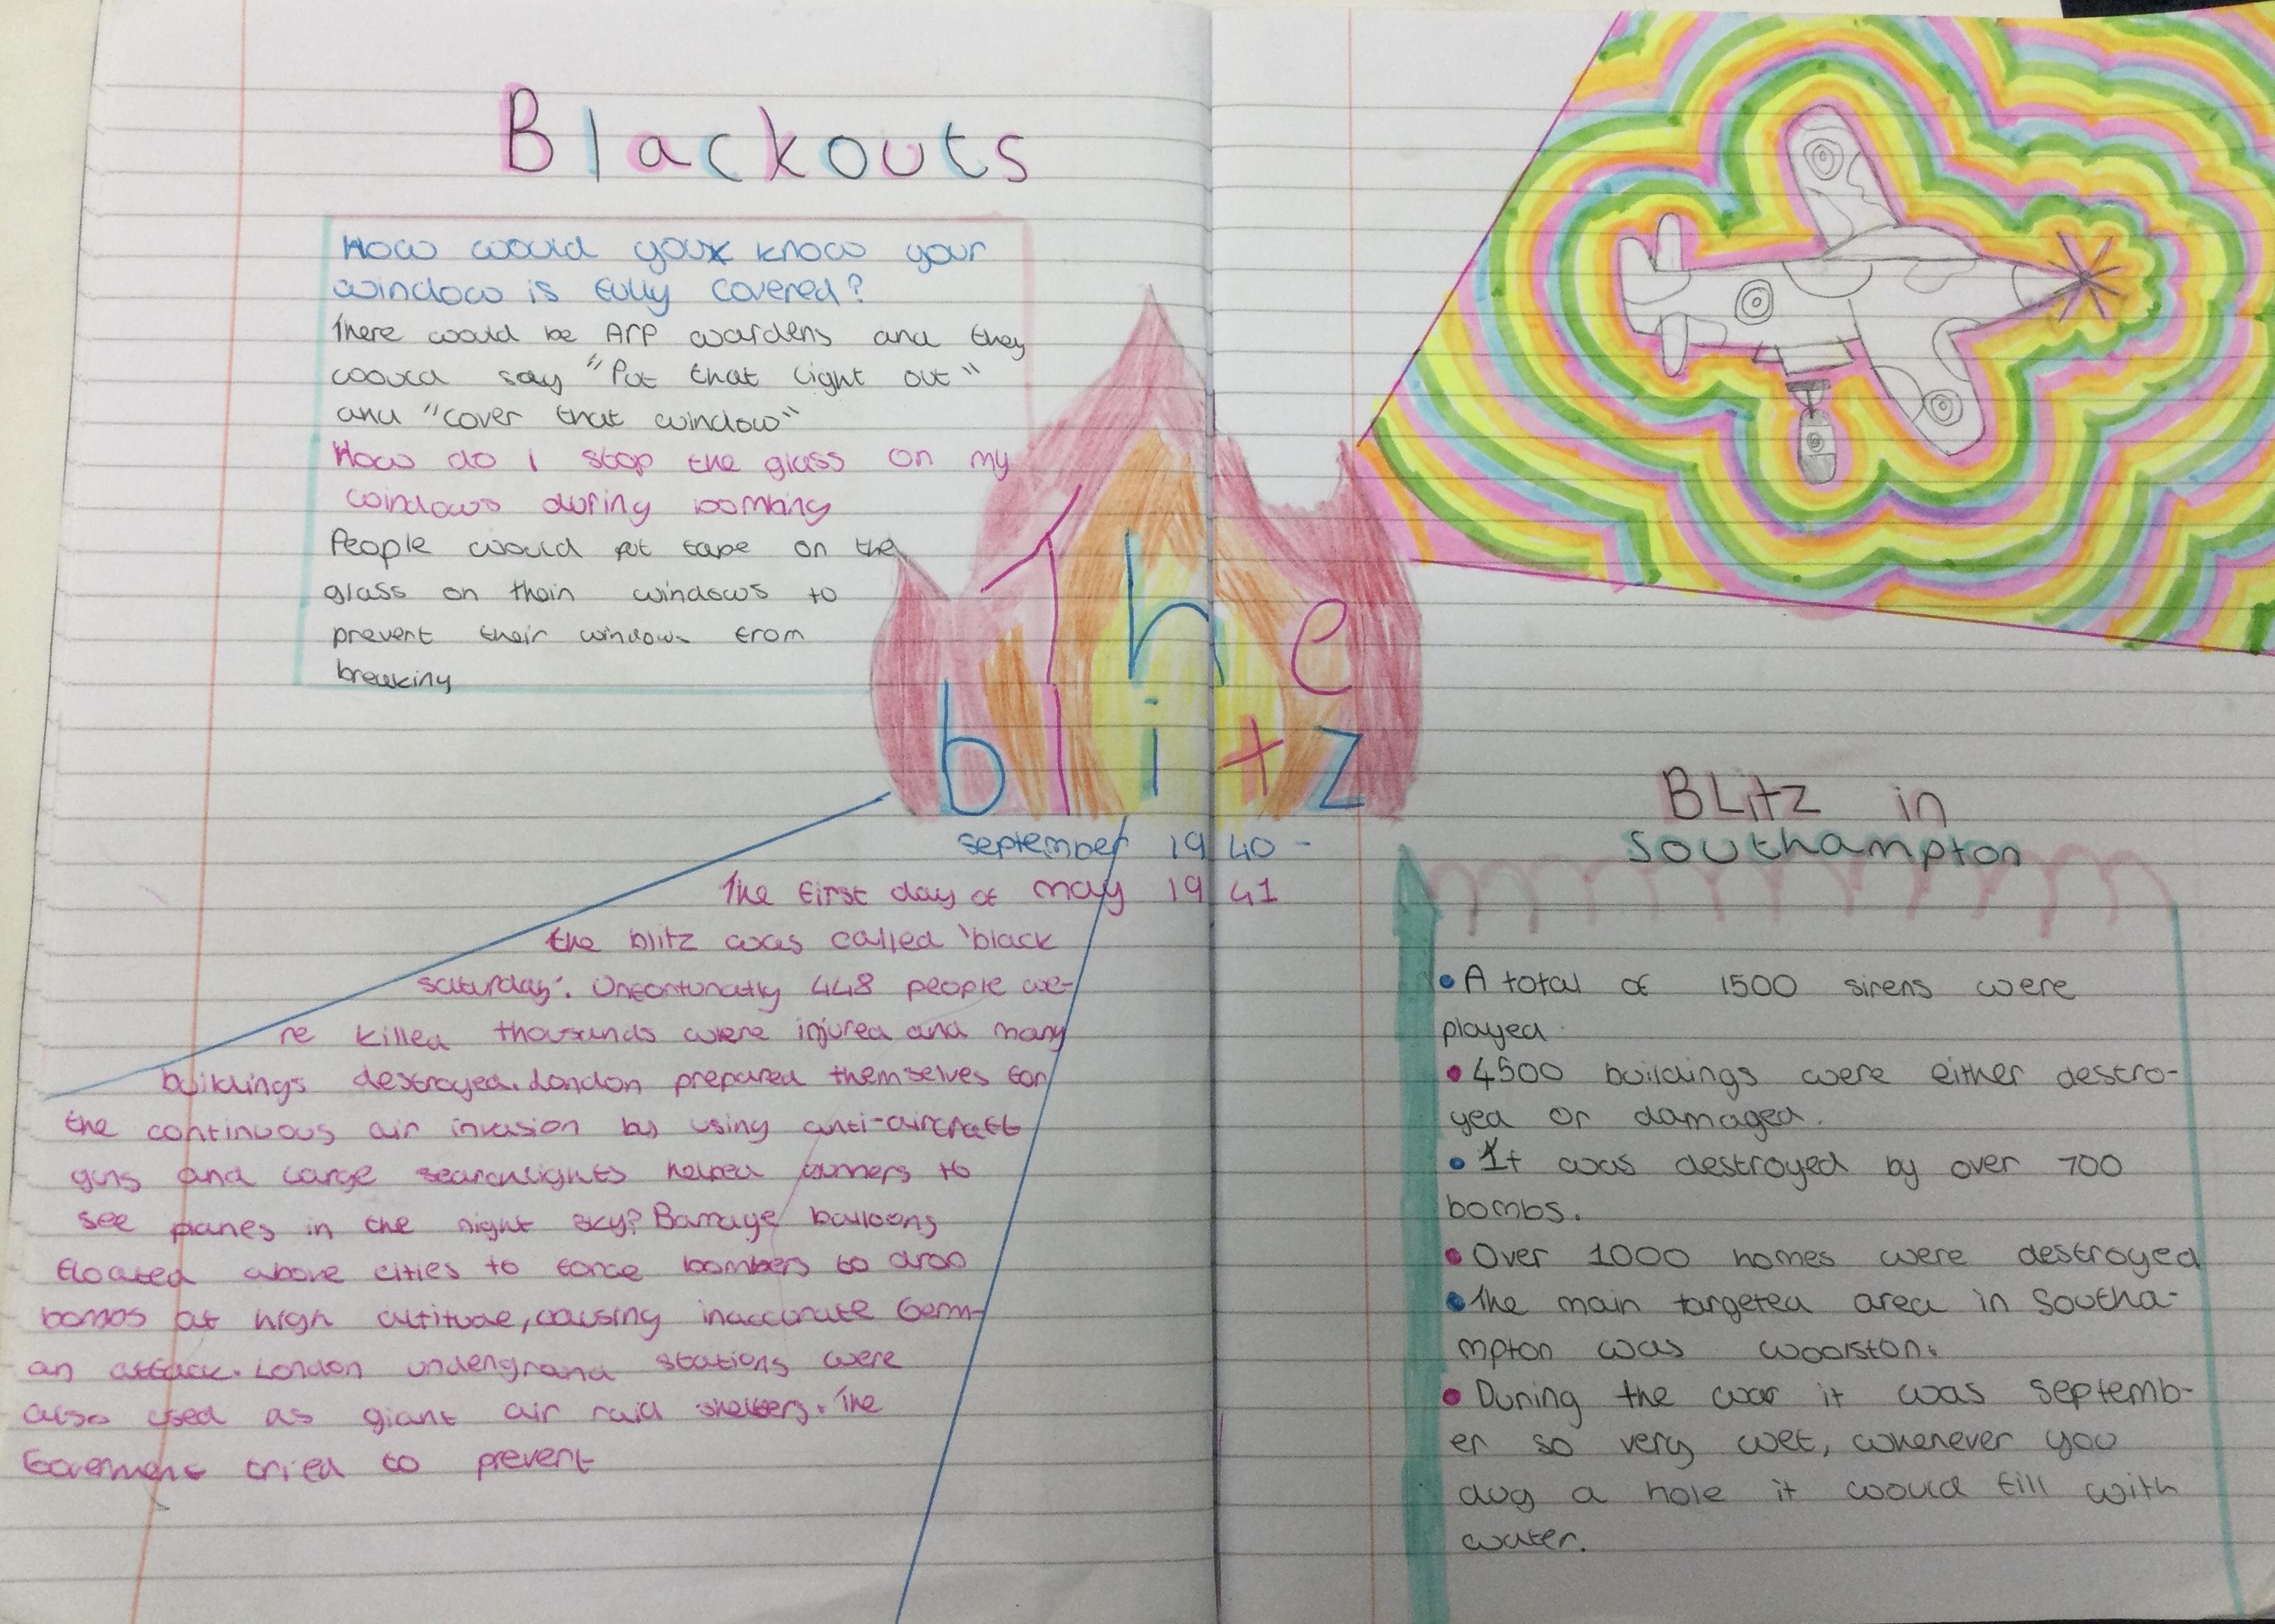 Blackouts
How would you know your
window is fully covered?
There would be ARP wardens and they
would say "Put that light out"
and "cover that window"
How do I stop the glass on my
windows during bombing
People would put tape on the
glass on thoin windows to
prevent their windows from
breaking
The
blitz
september 1940 -
The first day of may 1941
the blitz was called 'black
saturday'. Unfortunatly 448 people we-
re killed thousands were injured and many
buildings destroyed. London prepared themselves for
the continuous air invasion by using anti-aircraft
guns and large searchlights helped gunners to
see planes in the night sky? Barrage balloons
floated above cities to force bombers to drop
bombs at high altitude, causing inaccurate Germ-
an attack. London undergrand stations were
also used as giant air raid shelters. The
Goverment tried to prevent
BLitz in
Southampton
• A total of 1500 sirens were
played.
• 4500 buildings were either destro-
yed or damaged.
• It was destroyed by over 700
bombs.
• Over 1000 homes were destroyed
• The main targeted area in Southa-
mpton was woolston.
• During the war it was septemb-
er so very wet, whenever you
dug a hole it would fill with
water.